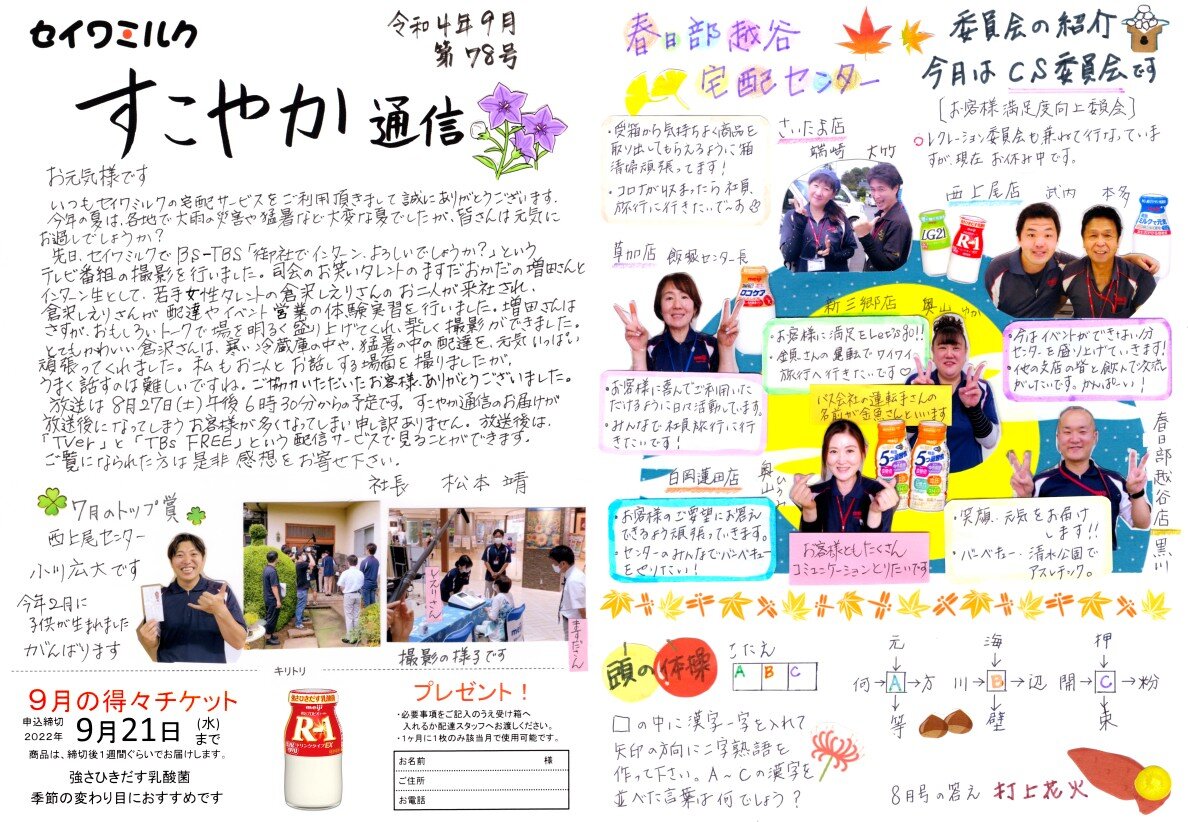 セイワミルク
令和4年9月
第78号
すこやか通信
お元気様です
いつもセイワミルクの宅配サービスをご利用頂きまして誠にありがとうございます。
今年の夏は、各地で大雨の災害や猛暑など大変な夏でしたが、皆さんは元気に
お過しでしょうか？
先日、セイワミルクでBS-TBS「御社でインターン、よろしいでしょうか？」という
テレビ番組の撮影を行いました。司会のお笑いタレントのますだおかだの増田さんと
インターン生として、若手女性タレントの倉沢しえりさんのお二人が来社され、
倉沢しえりさんが配達やイベント営業の体験実習を行いました。増田さんは
さすが、おもしろいトークで場を明るく盛り上げてくれ、楽しく撮影ができました。
とてもかわいい倉沢さんは、寒い冷蔵庫の中や、猛暑の中の配達を、元気いっぱい
頑張ってくれました。私もお二人とお話しする場面を撮りましたが、
うまく話すのは難しいですね。ご協力いただいたお客様、ありがとうございました。
放送は8月27日(土)午後6時30分からの予定です。すこやか通信のお届けが
放送後になってしまうお客様が多くなってしまい申し訳ありません。放送後は、
「TVer」と「TBS FREE」という配信サービスで見ることができます。
ご覧になられた方は是非感想をお寄せ下さい。
社長 松本靖
7月のトップ賞
西上尾センター
小川広大です
今年2月に
子供が生まれました
がんばります
しえりさん
ますださん
撮影の様子です
キリトリ
9月の得々チケット
申込締切
2022年
9月21日(水)まで
商品は、締切後1週間ぐらいでお届けします。
強さひきだす乳酸菌
季節の変わり目におすすめです
強さひきだす乳酸菌
meiji
R-1
ドリンクタイプEX
プレゼント！
・必要事項をご記入のうえ受け箱へ
入れるか配達スタッフへお渡しください。
・1ヶ月に1枚のみ該当月で使用可能です。
お名前 様
ご住所
お電話
春日部越谷
宅配センター
委員会の紹介
今月はCS委員会です
[お客様満足度向上委員会]
○レクレーション委員会も兼ねて行なっていま
すが、現在お休み中です。
・受箱から気持ちよく商品を
取り出してもらえるように箱
清掃頑張ってます！
・コロナが収まったら社員
旅行に行きたいです
さいたま店
端崎 大竹
西上尾店 武内 本多
LG21
R-1
草加店 飯飯センター長
ロコケア
・お客様に喜んでご利用いた
だけるように日々活動しています。
・みんなで社員旅行に行
きたいです！
新三郷店 奥山ゆか
・お客様に満足をLet's go!!
・金魚さんの運転でワイワイ
旅行へ行きたいです♡
バス会社の運転手さんの
名前が金魚さんといいます
・今はイベントができない分
センターを盛り上げていきます！
・他の支店の皆と飲んで交流
がしたいです。かんぱーい！
白岡蓮田店
・お客様のご要望にお答え
できるよう頑張っていきます。
・センターのみんなでバーベキュー
をやりたい！
お客様ともたくさん
コミュニケーションとりたいです
春日部越谷店 黒川
・笑顔、元気をお届け
します!!
・バーベキュー、清水公園で
アスレチック。
頭の体操
こたえ
A B C
□の中に漢字一字を入れて
矢印の方向に二字熟語を
作って下さい。A～Cの漢字を
並べた言葉は何でしょう？
元
↓
何→A→方
↓
等
海
↓
川→B→辺
↓
壁
押
↓
開→C→粉
↓
束
8月号の答え 打上花火